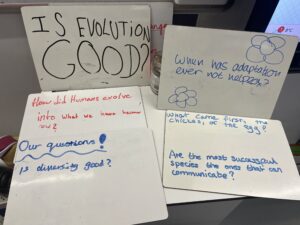 IS EVOLUTION
GOOD?
When has adaptation
ever not helped?
How did Humans evolve
into what we have become
now?
What came first, the
chicken, or the egg?
Our questions!
Is diversity good?
Are the most successful
species the ones that can
communicate?